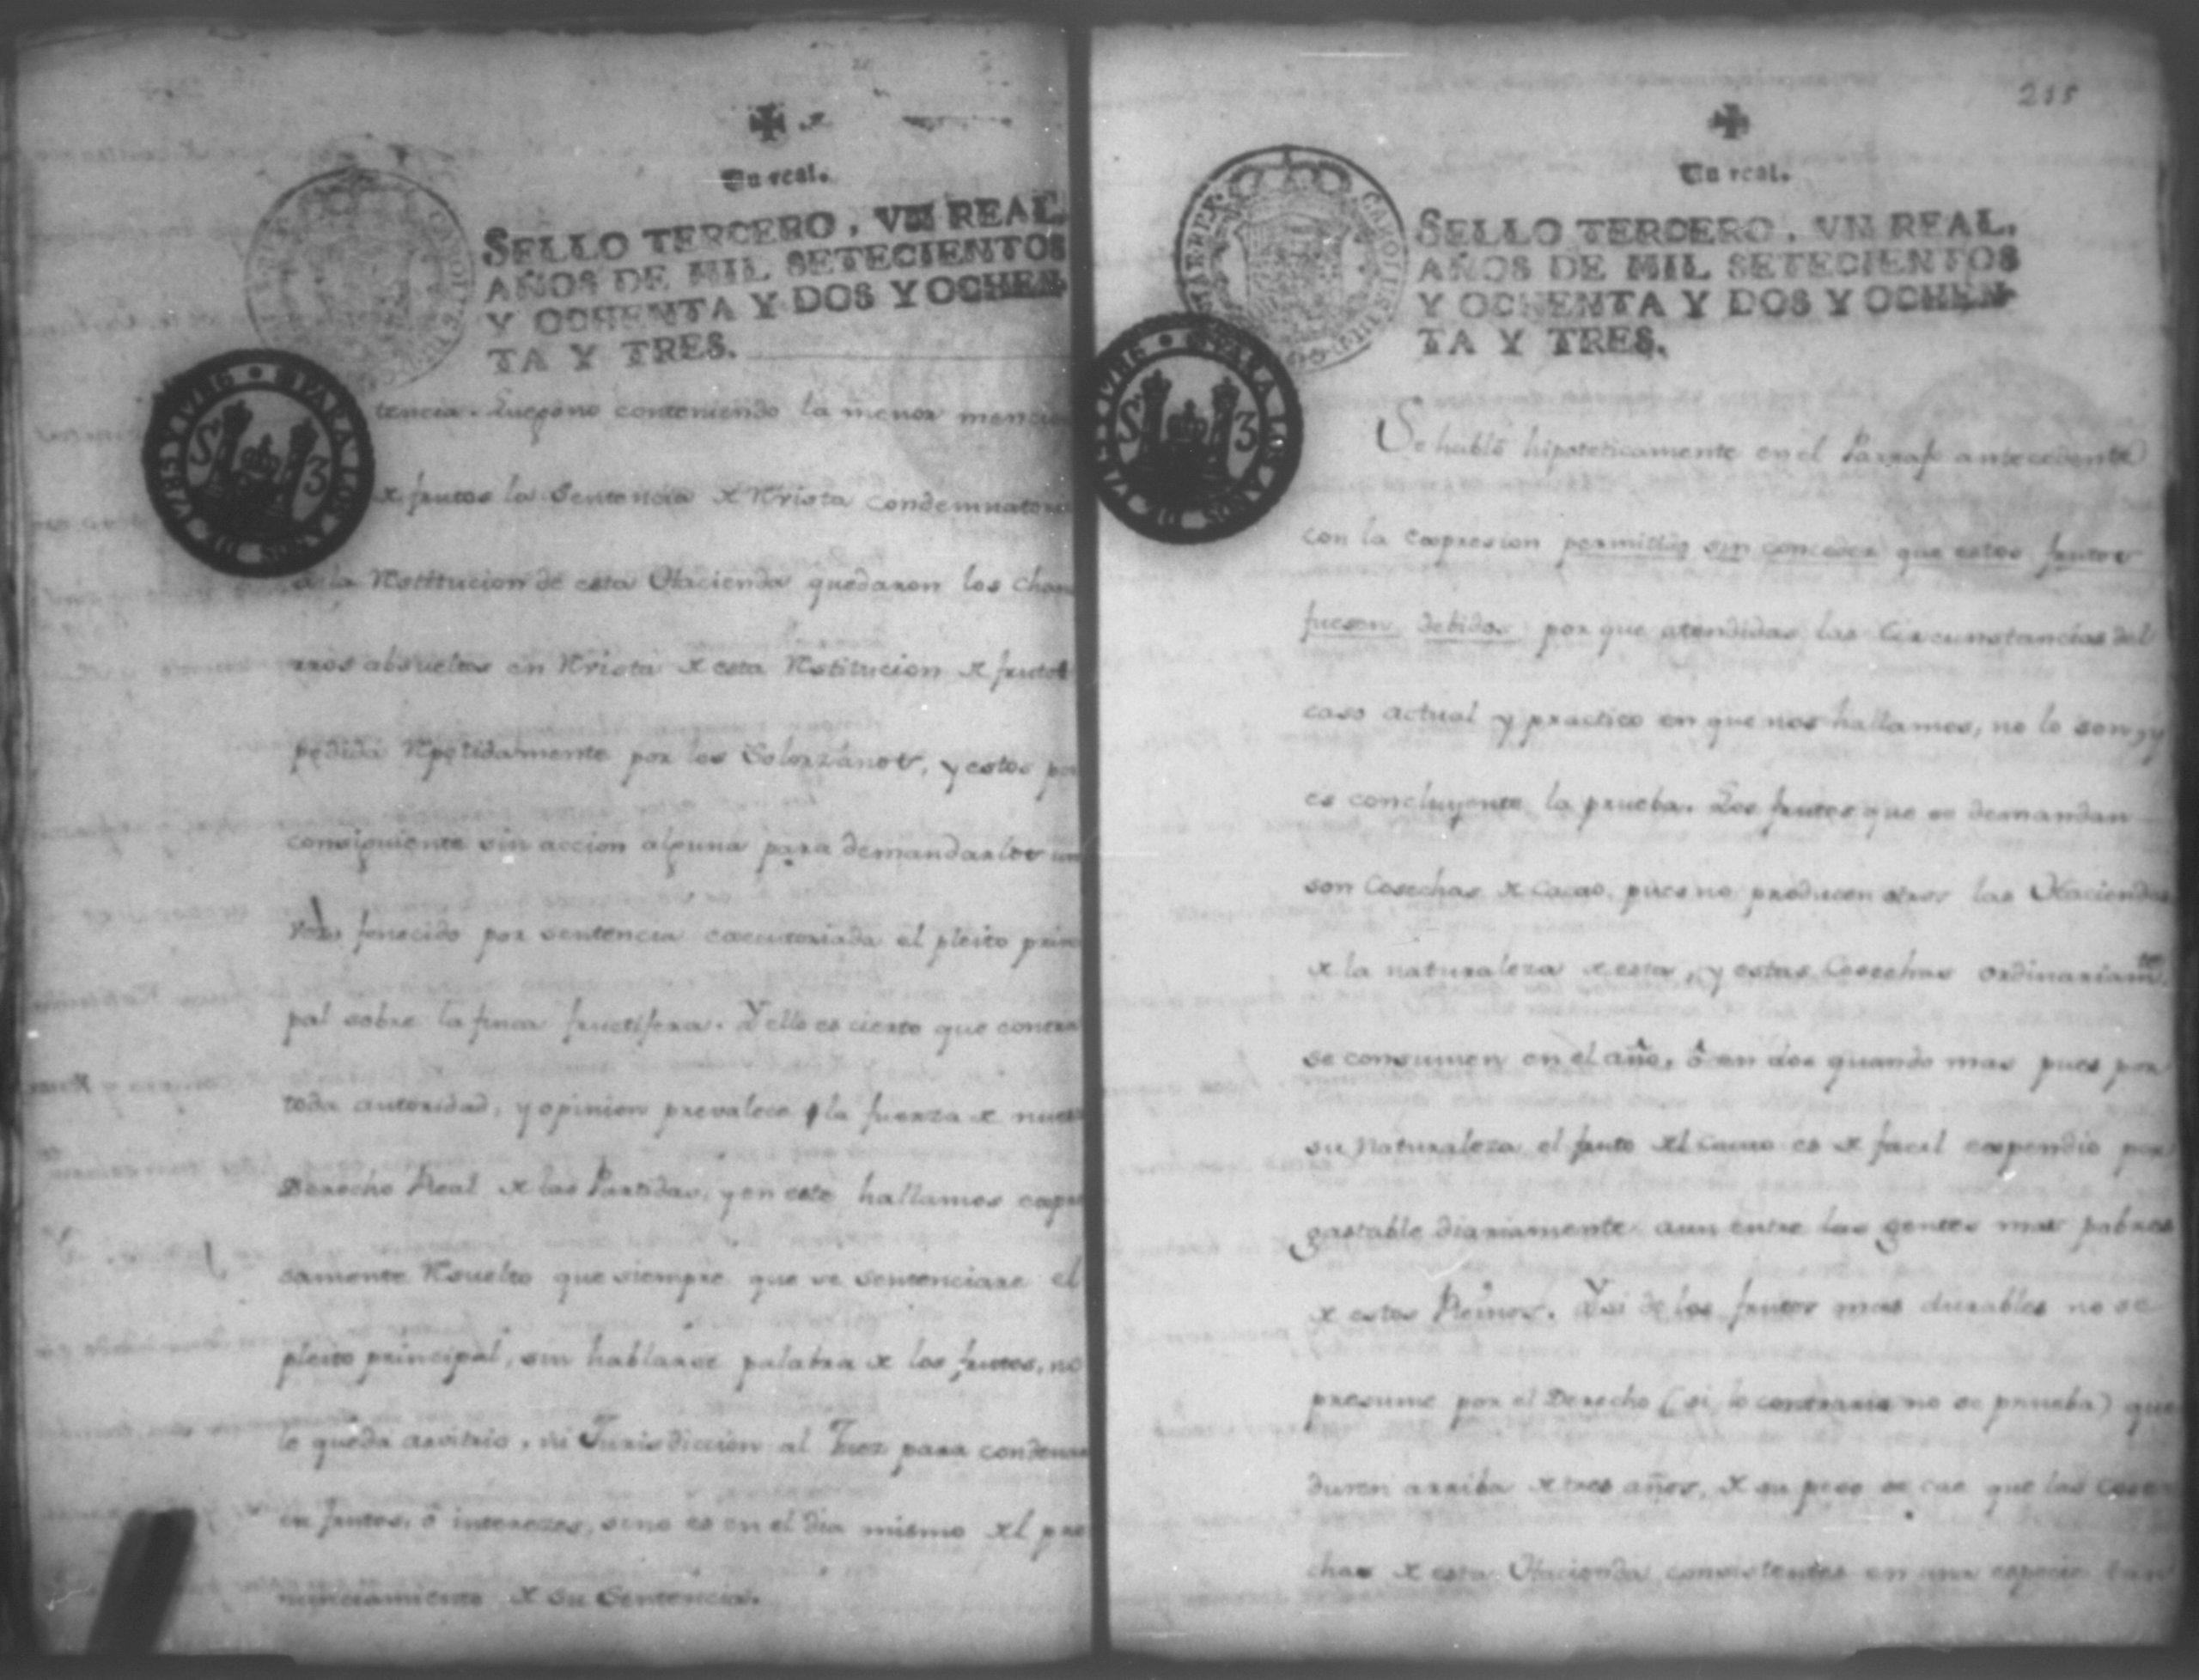 Un real.
SELLO TERCERO, VN REAL,
AÑOS DE MIL SETECIENTOS
Y OCHENTA Y DOS Y OCHEN-
TA Y TRES.
PARA LOS AÑOS DE
S 3
tencia. Luego no conteniendo la menor mencio
x frutos la Sentencia x Rvista condemnatoria
a la Rstitucion de esta Hacienda quedaron los Cha
rros absueltos en Rvista x esta Rstitucion x frutos
pedida Rpetidamente por los Solorzanos, y estos por
consiguiente sin accion alguna para demandarlos una
vez fenecido por sentencia executoriada el pleito princi
pal sobre la finca fructifera. Y ello es cierto que contra
toda autoridad, y opinion prevalece la fuerza x nues
Derecho Real x las Partidas, y en este hallamos expre
samente Rsuelto que siempre que se sentenciare el
pleito principal, sin hablarse palabra x los frutos, no
le queda arvitrio, ni Jurisdiccion al Juez para condenar
en frutos, ô interezes, sino es en el dia mismo xl pro
nunciamiento x su Sentencia.
215
Un real.
SELLO TERCERO, VN REAL,
AÑOS DE MIL SETECIENTOS
Y OCHENTA Y DOS Y OCHEN-
TA Y TRES.
CAROLUS III
PARA LOS AÑOS DE
S 3
Se habló hipoteticamente en el Parrafo antecedente
con la expresion permitido sin conceder que estos frutos
fuesen debidos por que atendidas las Circunstancias del
caso actual y practico en que nos hallamos, no lo son, y
es concluyente la prueba. Los frutos que se demandan
son Cosechas x Cacao, pues no producen otros las Haciendas
x la naturaleza x esta, y estas Cosechas ordinariamte.
se consumen en el año, ô en dos quando mas pues por
su Naturaleza el fruto xl Cacao es x facil expendio por
gastable diariamente aun entre las gentes mas pobres
x estos Reinos. Y si de los frutos mas durables no se
presume por el Derecho (si lo contrario no se prueba) que
duren arriba x tres años, x su peso se cae que las Cose
chas x esta Hacienda consistentes en una especie tan